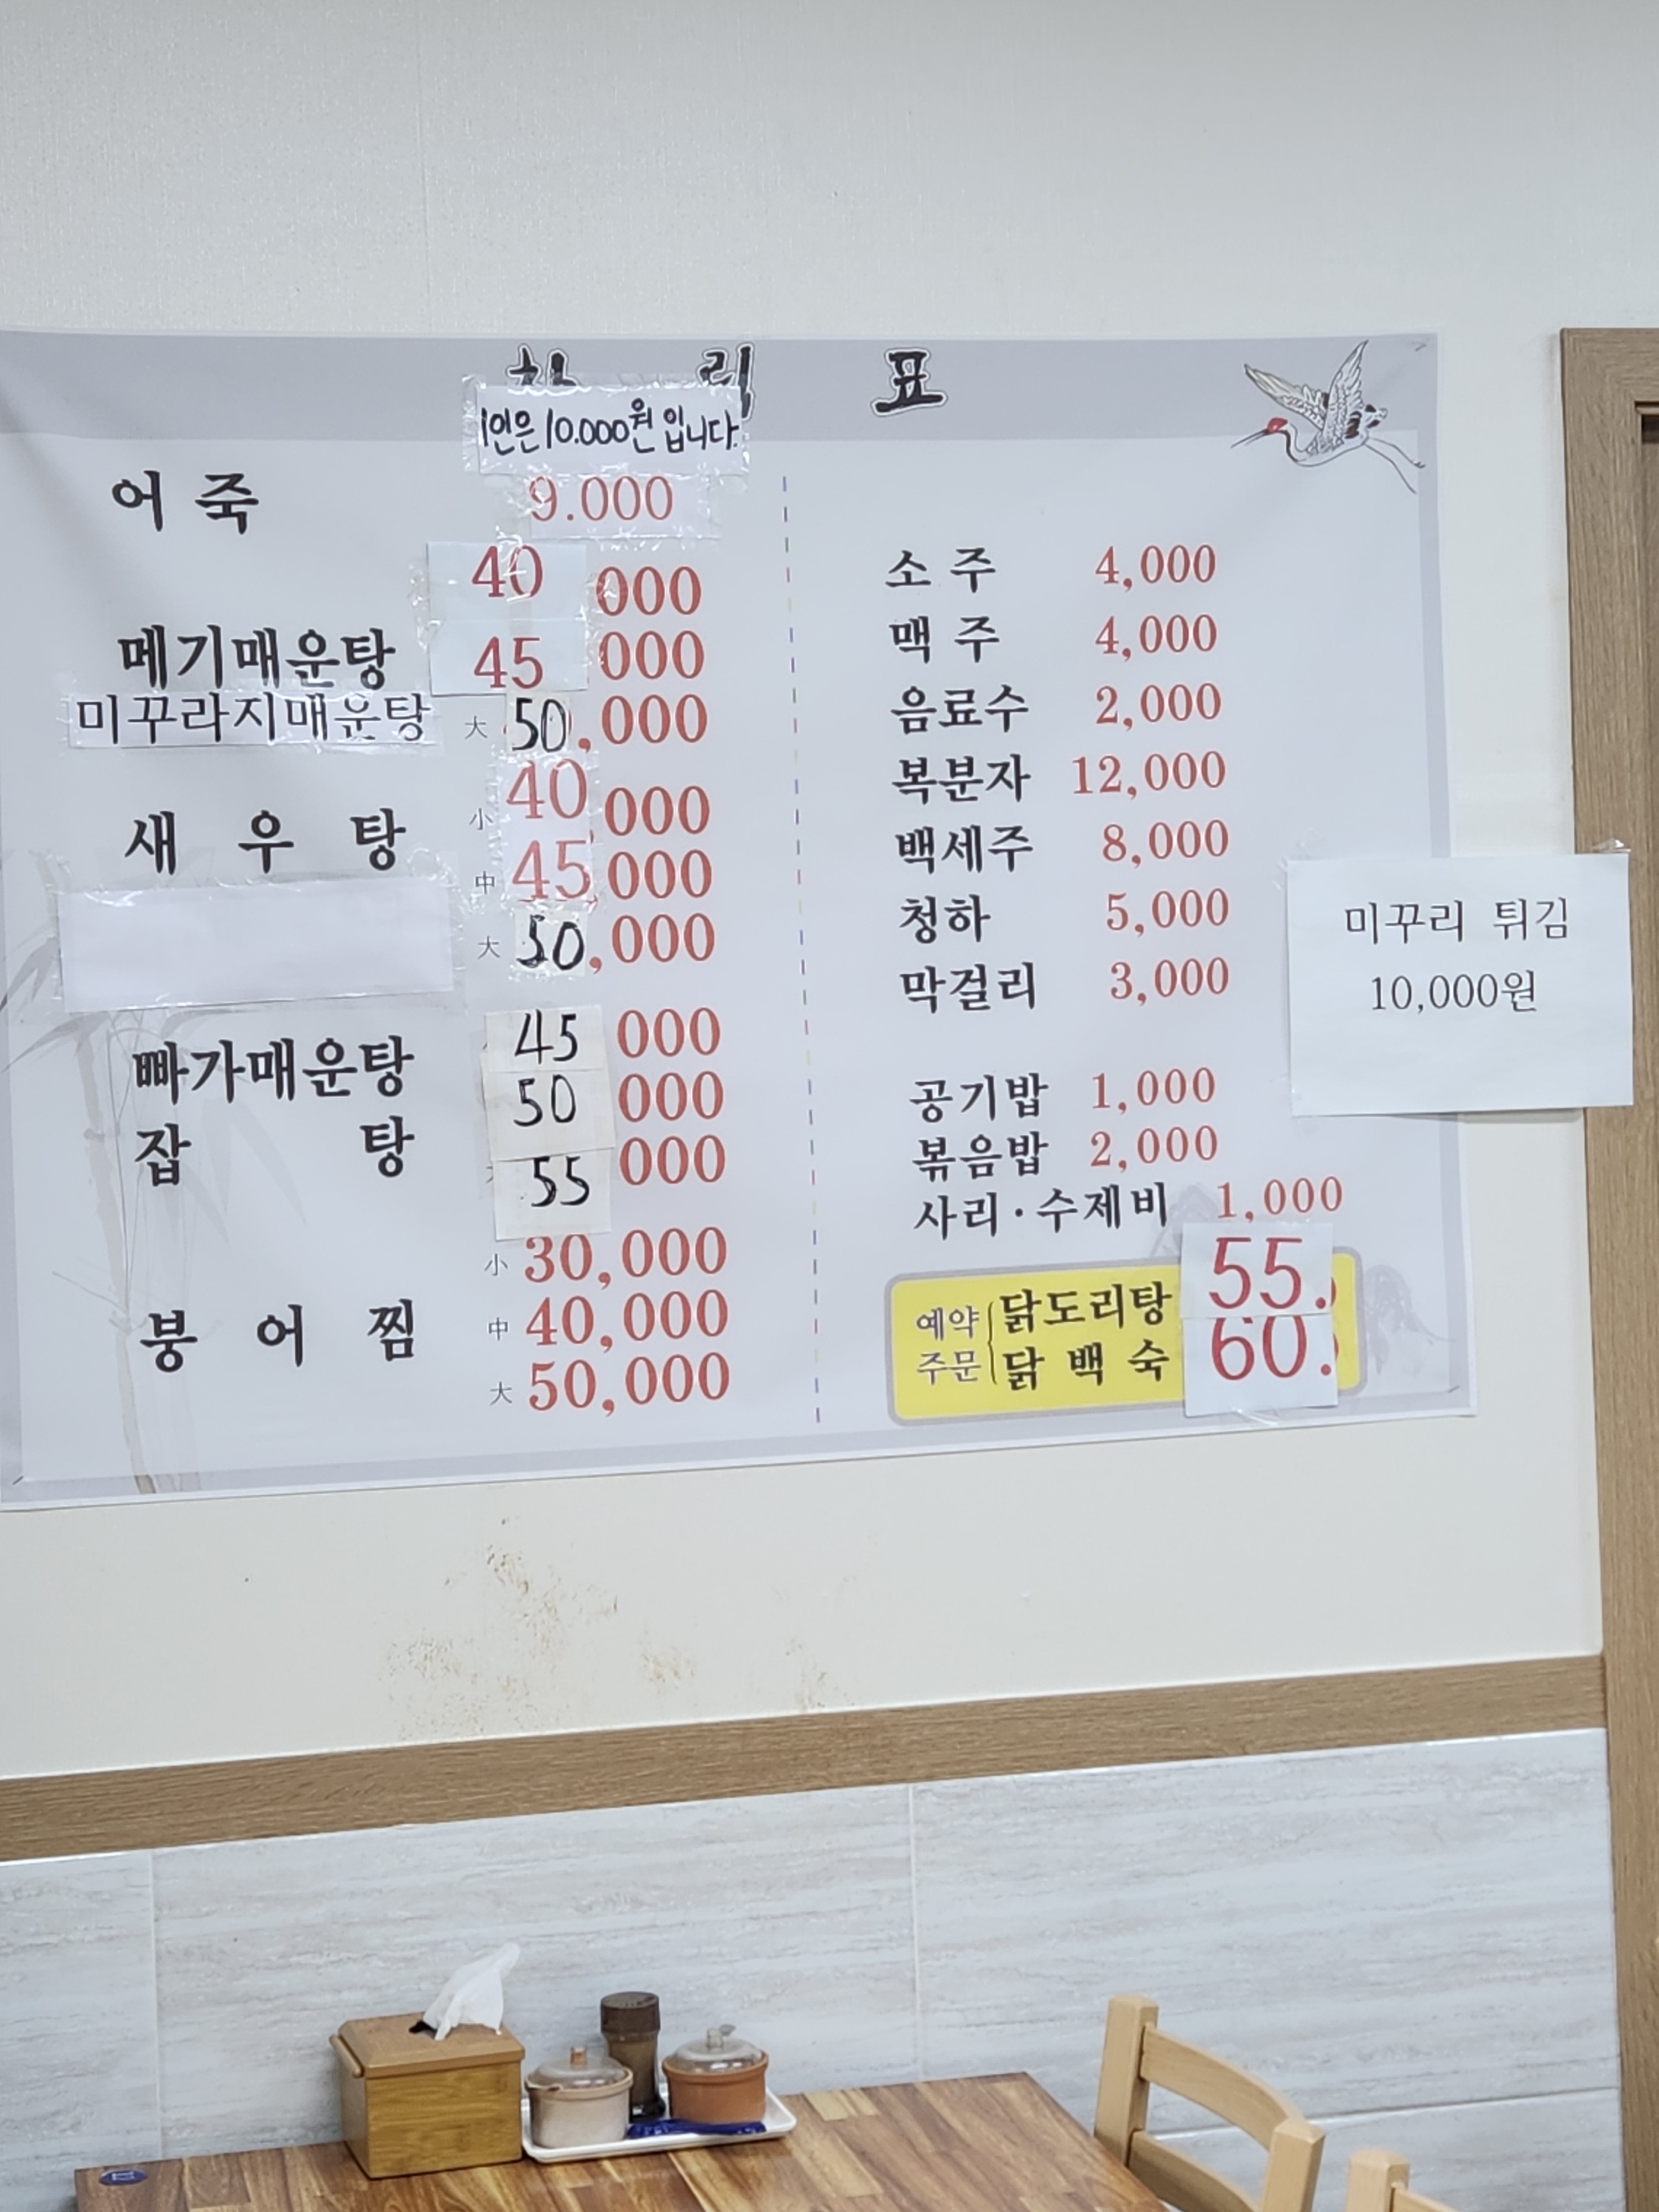 차 림 표
1인은 10.000원 입니다.
어 죽 9.000
40 000
메기매운탕 45 000
미꾸라지매운탕 大 50,000
小 40,000
새 우 탕
中 45,000
大 50,000
45 000
빠가매운탕 50 000
잡 탕 55 000
小 30,000
붕 어 찜 中 40,000
大 50,000
소 주 4,000
맥 주 4,000
음료수 2,000
복분자 12,000
백세주 8,000
청하 5,000
막걸리 3,000
공기밥 1,000
볶음밥 2,000
사리·수제비 1,000
예약 주문
닭도리탕 55.
닭 백 숙 60.
미꾸리 튀김
10,000원